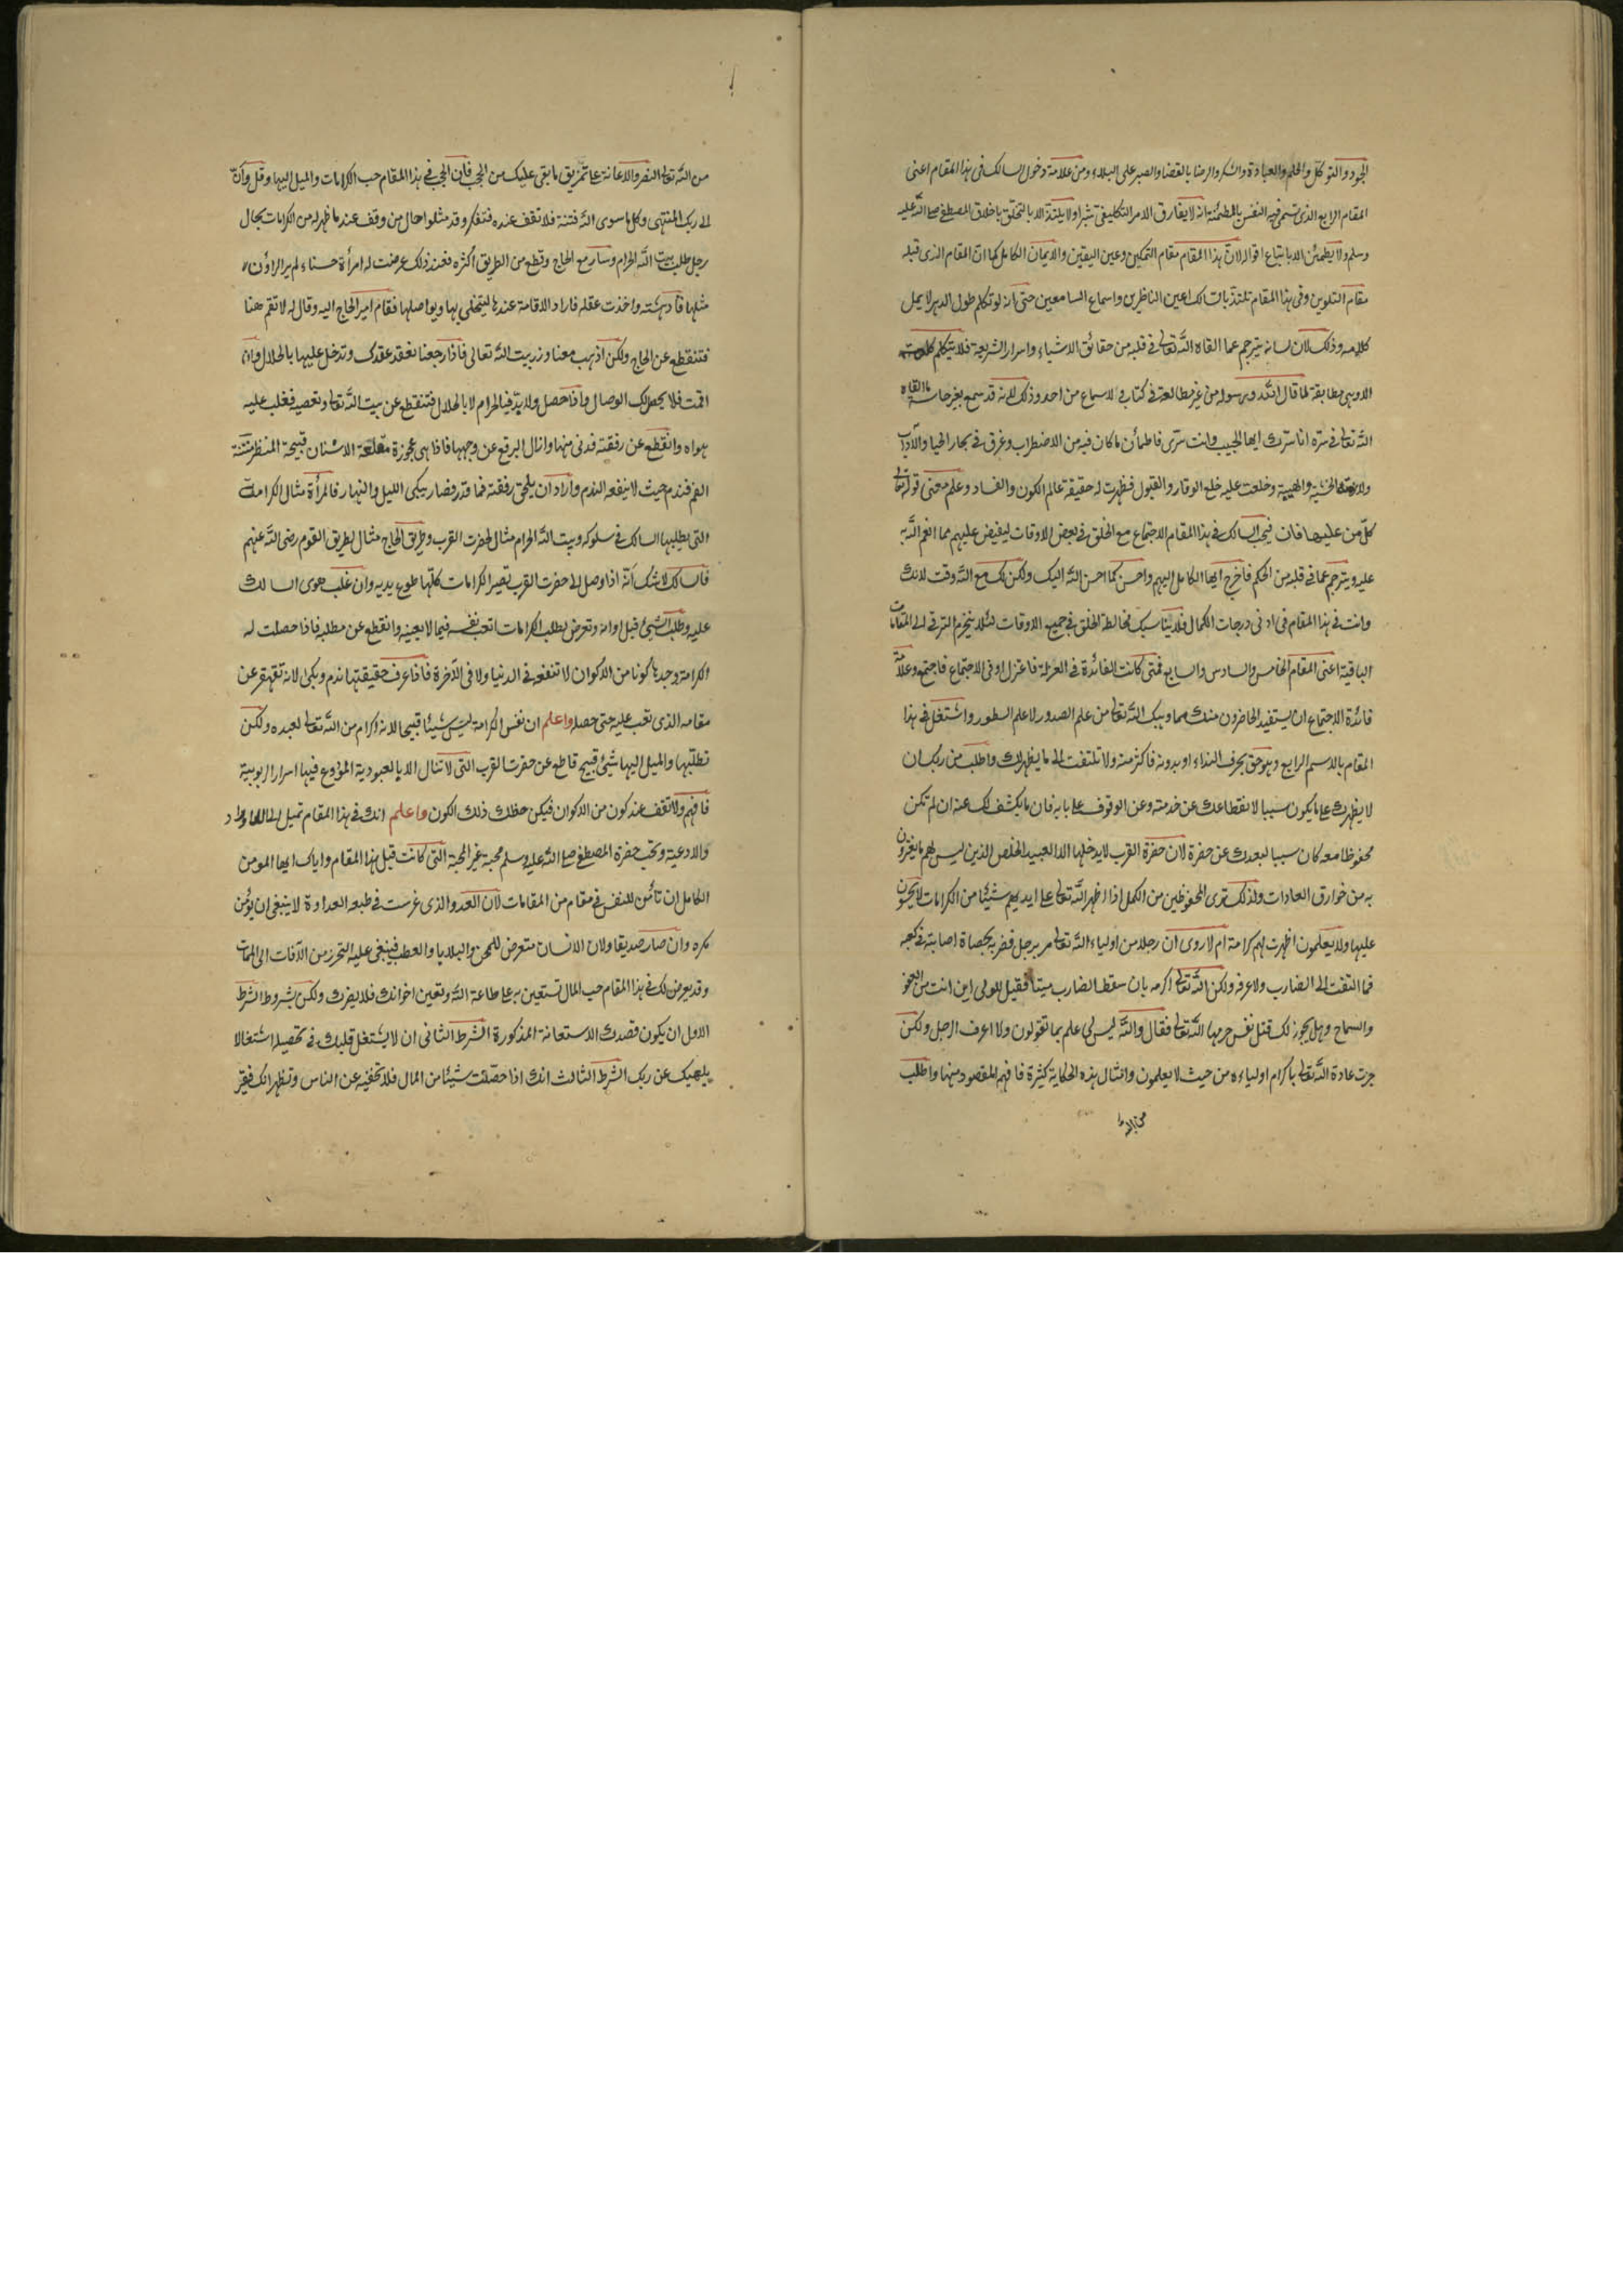 الجود والتوكل والحلم والعبادة والشكر والرضا بالقضا والصبر على البلاء ومن علامة دخول السالك فى هذا المقام اعنى
المقام الرابع الذى تسمى فيه النفس بالمطمئنة انه لا يفارق الامر التكليفى شبرا ولا يلتذ الا بالتخلق باخلاق المصطفى صلى الله عليه
وسلم ولا يطمئن الا باتباع اقواله لان هذا المقام مقام التمكين وعين اليقين والايمان الكامل كما ان المقام الذى قبله
مقام التلوين وفى هذا المقام تلتذ بالسالك اعين الناظرين واسماع السامعين حتى انه لو تكلم طول الدهر لا يمل
كلامه وذلك لان لسانه يترجم عما القاه الله تعالى فى قلبه من حقائق الاشياء واسرار الشريعة فلا يتكلم كلمة
الا وهى مطابقة لما قال الله ورسوله من غير مطالعة فى كتاب ولا سماع من احد وذلك لانه قد سمع بغير حاسة ما القاه
الله تعالى فى سره انا سرك ايها الحبيب وانت سرى فاطمأن ما كان فيه من الاضطراب وغرق فى بحار الحيا والآداب
ولازمته الخشية والهيبة وخلعت عليه خلع الوقار والقبول فظهرت له حقيقة عالم الكون والفساد وعلم معنى قوله تعالى
كل من عليها فان فيجب السالك فى هذا المقام الاجتماع مع الخلق فى بعض الاوقات ليفيض عليهم مما انعم الله به
عليه ويترجم عما فى قلبه من الحكم فاخرج ايها الكامل اليهم واحسن كما احسن الله اليك ولكن لك مع الله وقت لانك
وانت فى هذا المقام فى ادنى درجات الكمال فلا يناسبك مخالطة الخلق فى جميع الاوقات لئلا ينخرم الترقى الى المقامات
الباقية اعنى المقام الخامس والسادس والسابع فمتى كانت الفائدة فى العزلة فاعتزل او فى الاجتماع فاجتمع وعلامة
فائدة الاجتماع ان يستفيد الحاضرون منك مما وهبك الله تعالى من علم الصدور لا علم السطور واشتغل فى هذا
المقام بالاسم الرابع وهو حق بحرف النداء او بدونه فاكثر منه ولا تلتفت الى ما يظهر لك واطلب من ربك ان
لا يظهرك على ما يكون سببا لانقطاعك عن خدمته وعن الوقوف على بابه فان ما يكشف لك عنه ان لم تكن
محفوظا معه كان سببا لبعدك عن حضرة لان حضرة القرب لا يدخلها الا العبيد الخلص الذين ليس لهم ما يفرون
به من خوارق العادات ولذلك ترى المحفوظين من الكمل اذا اظهر الله تعالى على ايديهم شيئا من الكرامات لا يحسون
عليها ولا يعلمون اظهرت لهم كرامة ام لا روى ان رجلا من اولياء الله تعالى مر برجل فضربه بحصاة اصابته فى كعبه
فما التفت الى الضارب ولا عرفه ولكن الله تعالى اكرمه بان سقط الضارب ميتا فقيل للولى اين انت من العفو
والسماح وهل يجوز لك قتل نفس حرمها الله تعالى فقال والله ليس لى علم بما تقولون ولا اعرف الرجل ولكن
جرت عادة الله تعالى باكرام اولياءه من حيث لا يعلمون وامثال هذه الحكاية كثيرة فافهم المقصود منها واطلب
من الله
من الله تعالى النصر والاعانة على تمزيق ما بقى عليك من الحجب فان الحجب فى هذا المقام حب الكرامات والميل اليها وقل وان
الى ربك المنتهى وكل ما سوى الله فتنة فلا تقف عنده فتفكر وقد مثلوا حال من وقف عند ما ظهر له من الكرامات بحال
رجل طلب بيت الله الحرام وسار مع الحاج وقطع من الطريق اكثره فعند ذلك عرضت له امرأة حسناء لم ير الراؤن
مثلها فادهشته واخذت عقله فاراد الاقامة عندها ليتملى بها ويواصلها فقام امير الحاج اليه وقال له لا تقم هنا
فتنقطع عن الحاج ولكن اذهب معنا وزر بيت الله تعالى فاذا رجعنا نعقد عقدك وتدخل عليها بالحلال وان
اقمت فلا يحصل لك الوصال واذا حصل ولا بد فبالحرام لا بالحلال فتنقطع عن بيت الله تعالى وتعصيه فغلب عليه
هواه وانقطع عن رفقته فدنى منها وازال البرقع عن وجهها فاذا هى عجوزة مقلعة الاسنان قبيحة المنظر منتنة
الفم فندم حيث لا ينفعه الندم واراد ان يلحق رفقته فما قدر فصار يبكى الليل والنهار فالمرأة مثال الكرامات
التى يطلبها السالك فى سلوكه وبيت الله الحرام مثال لحضرت القرب وطريق الحاج مثال لطريق القوم رضى الله عنهم
فالسالك لا شك انه اذا وصل الى حضرت القرب تصير الكرامات كلها طوع يديه وان غلب هوى السالك
عليه وطلب الشئ قبل اوانه وتعرض لطلب الكرامات اتعب نفسه فيما لا يعينه وانقطع عن مطلبه فاذا حصلت له
الكرامة وجدها كونا من الاكوان لا تنفعه فى الدنيا ولا فى الآخرة فاذا عرف حقيقتها ندم وبكى لانه تقهقر عن
مقامه الذى تعب عليه حتى حصله واعلم ان نفس الكرامة ليس شيئا قبيحا لانه اكرام من الله تعالى لعبده ولكن
تطلبها والميل اليها شئ قبيح قاطع عن حضرت القرب التى لا تنال الا بالعبودية الموزوع فيها اسرار الربوبية
فافهم ولا تقف عند كون من الاكوان فيكن حظك ذلك الكون واعلم انك فى هذا المقام تميل الى الاوراد
والادعية وتحب حضرة المصطفى صلى الله عليه وسلم محبة غير المحبة التى كانت قبل هذا المقام واياك ايها المومن
الكامل ان تأمن للنفس فى مقام من المقامات لان العدو الذى غرست فى طبعه العداوة لا ينبغى ان يؤمن
مكره وان صار صديقا ولان الانسان متعرض للمحن والبلايا والعطب فينبغى عليه التحرز من الآفات الى الممات
وقد يعرض لك فى هذا المقام حب المال تستعين به على طاعة الله وتعين اخوانك فلا يضرك ولكن بشروط الشرط
الاول ان يكون قصدك الاستعانة المذكورة الشرط الثانى ان لا يشتغل قلبك فى تحصيله اشتغالا
يلهيك عن ربك الشرط الثالث انك اذا حصلت شيئا من المال فلا تخفيه عن الناس وتظهر انك فقير